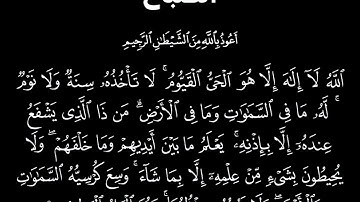 أَعُوذُ بِٱللَّهِ مِنَ ٱلشَّيْطَٰنِ ٱلرَّجِيمِ
ٱللَّهُ لَآ إِلَٰهَ إِلَّا هُوَ ٱلْحَىُّ ٱلْقَيُّومُ ۚ لَا تَأْخُذُهُۥ سِنَةٌ وَلَا نَوْمٌ
ۚ لَّهُۥ مَا فِى ٱلسَّمَٰوَٰتِ وَمَا فِى ٱلْأَرْضِ ۗ مَن ذَا ٱلَّذِى يَشْفَعُ
عِندَهُۥٓ إِلَّا بِإِذْنِهِۦ ۚ يَعْلَمُ مَا بَيْنَ أَيْدِيهِمْ وَمَا خَلْفَهُمْ ۖ وَلَا
يُحِيطُونَ بِشَىْءٍ مِّنْ عِلْمِهِۦٓ إِلَّا بِمَا شَآءَ ۚ وَسِعَ كُرْسِيُّهُ ٱلسَّمَٰوَٰتِ